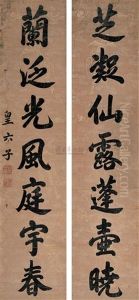 芝凝仙露蓬壺曉
蘭泛光風庭宇春
皇六子